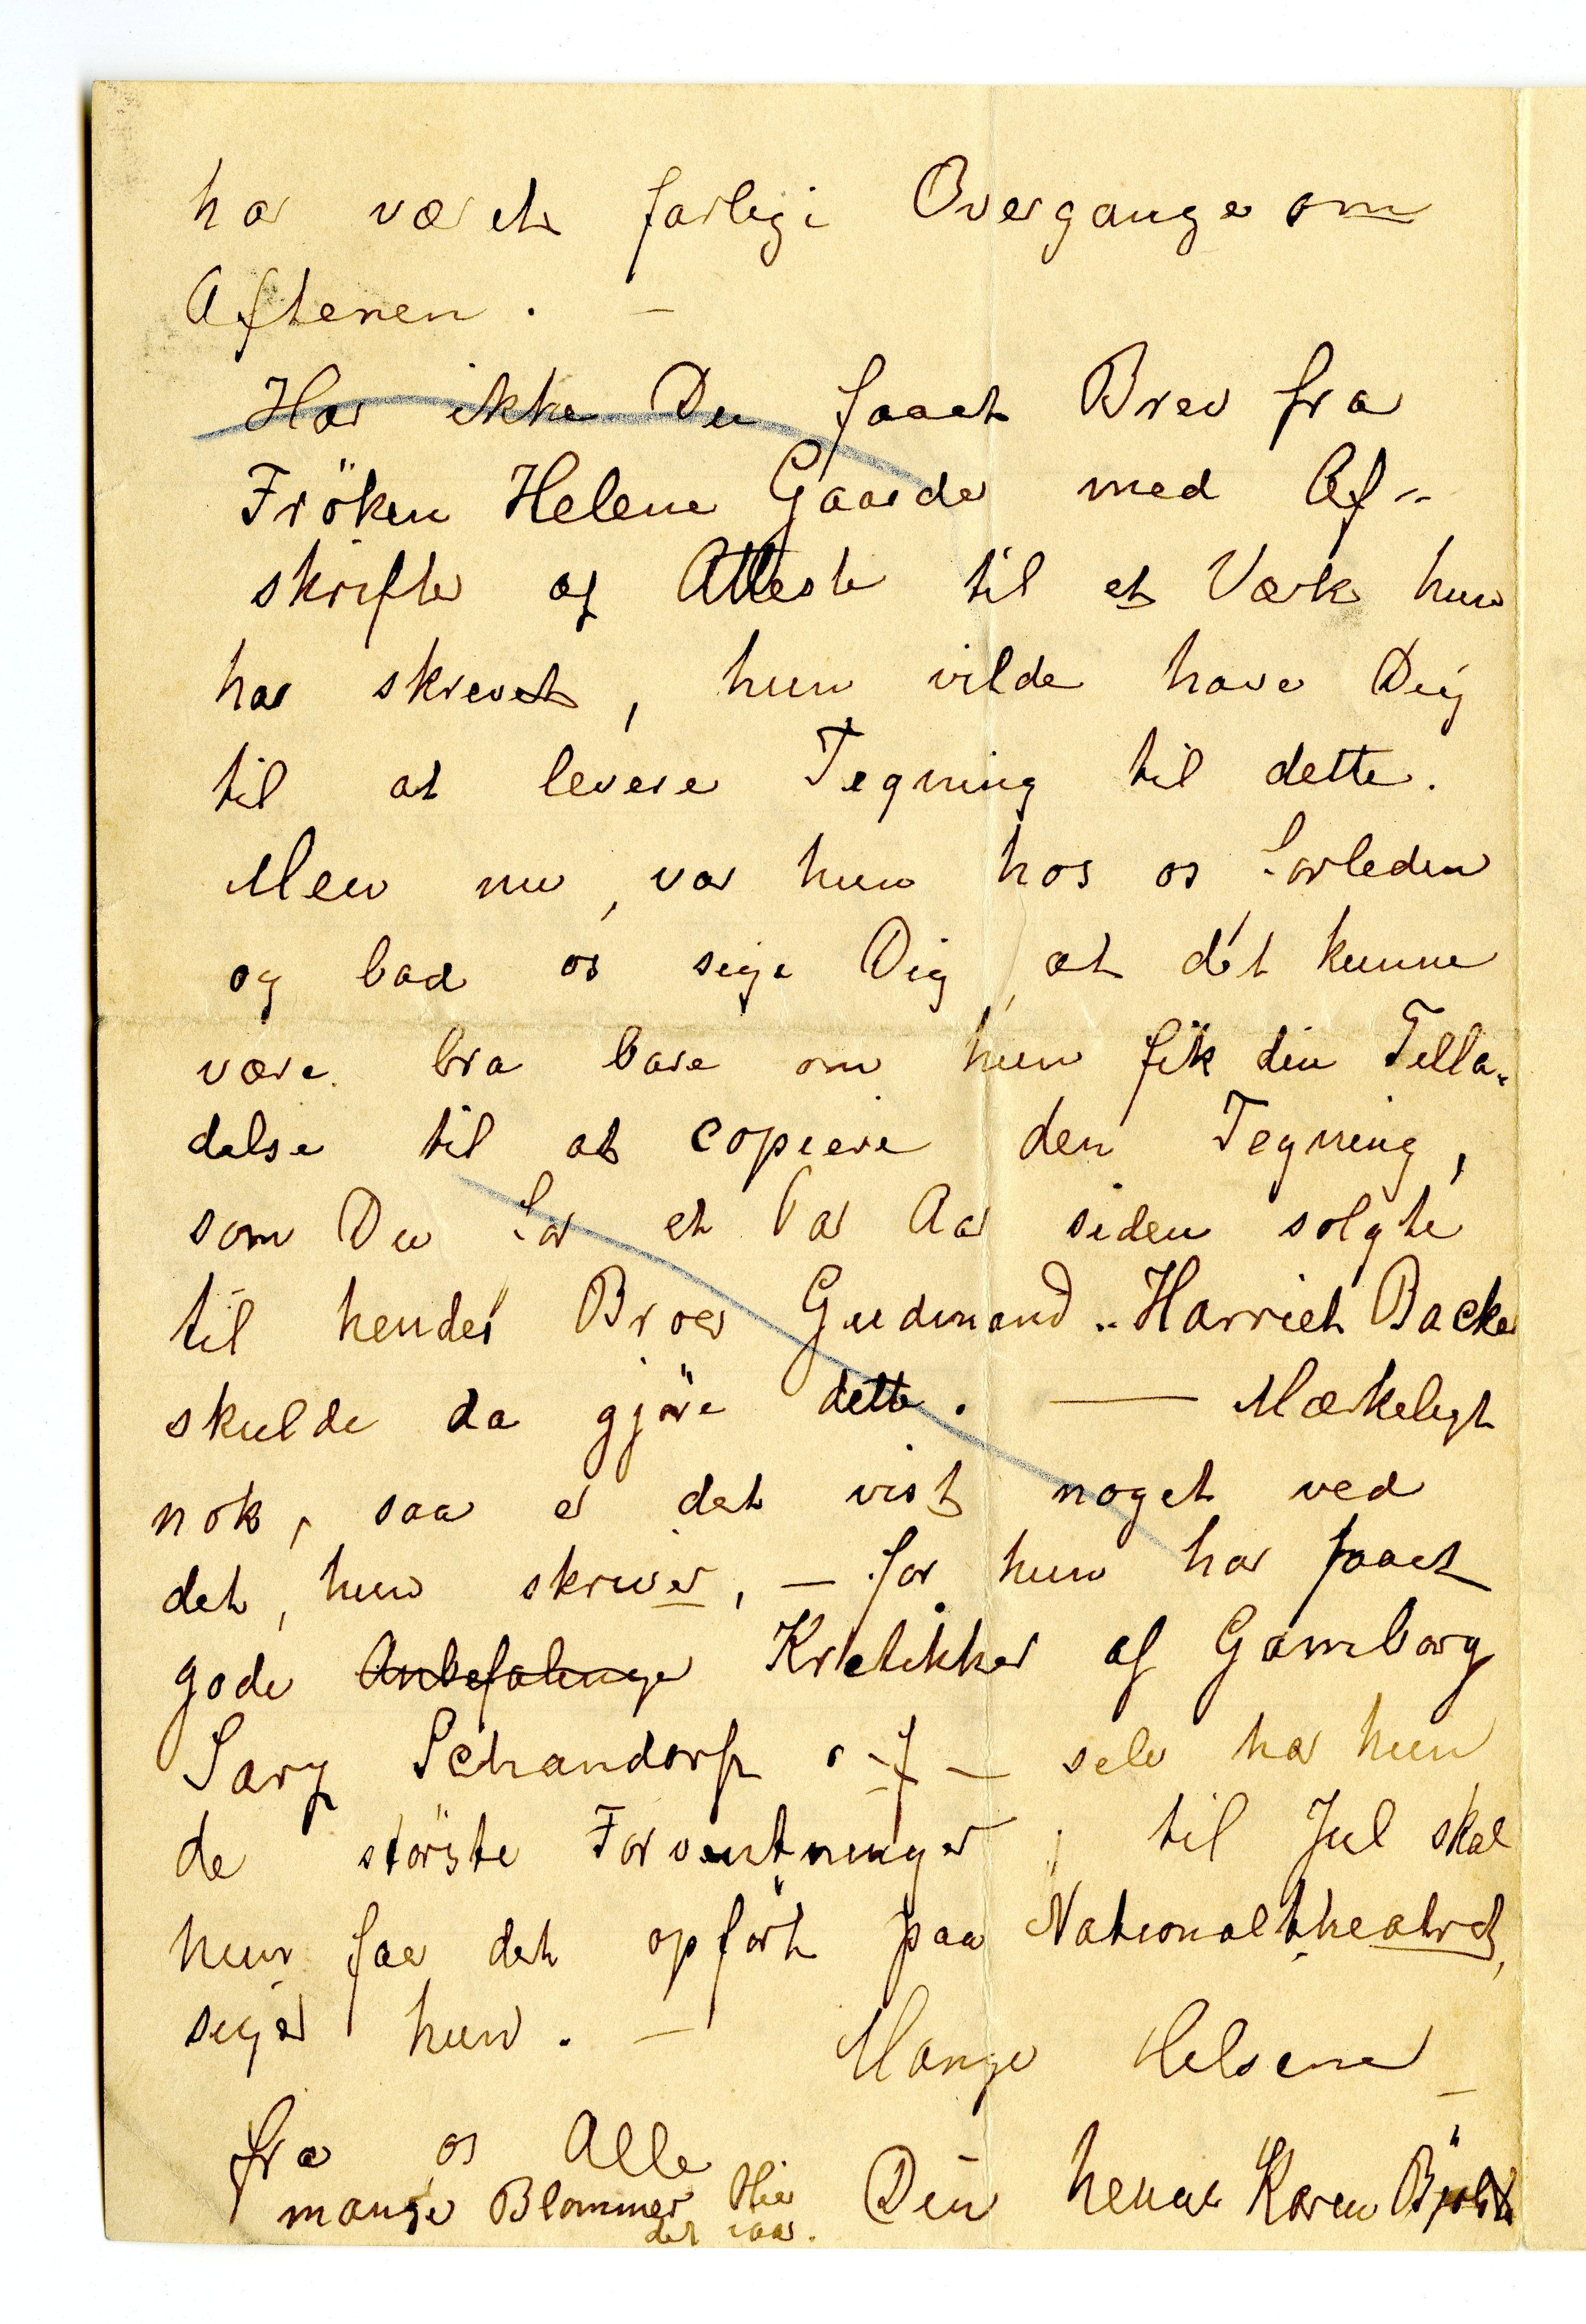 har været farlige Overgange om
Aftenen. —
Har ikke Du faaet Brev fra
Fröken Helene Gaarder med Af-
skrifter af Attester til et Værk hun
har skrevet, hun vilde have Dig
til at levere Tegning til dette.
Men nu, var hun hos os forleden
og bad os sige Dig, at det kunne
være bra bare om hun fik din Tilla-
delse til at copiere den Tegning,
som Du for et Par Aar siden solgte
til hendes Broer Gudmand - Harriet Backer
skulde da gjöre dette. — Mærkeligt
nok, saa er det vist noget ved
det, hun skriver, — for hun har faaet
gode Anbefalinger Kritikker af Gamborg
Lars Schandorf — selv har hun
de störste Forventninger, til Jul skal
hun faa det opfört paa Nationaltheatret,
siger hun. — Mange Helsener
fra os Alle
mange Blommer blir Din Karen
det iaar.